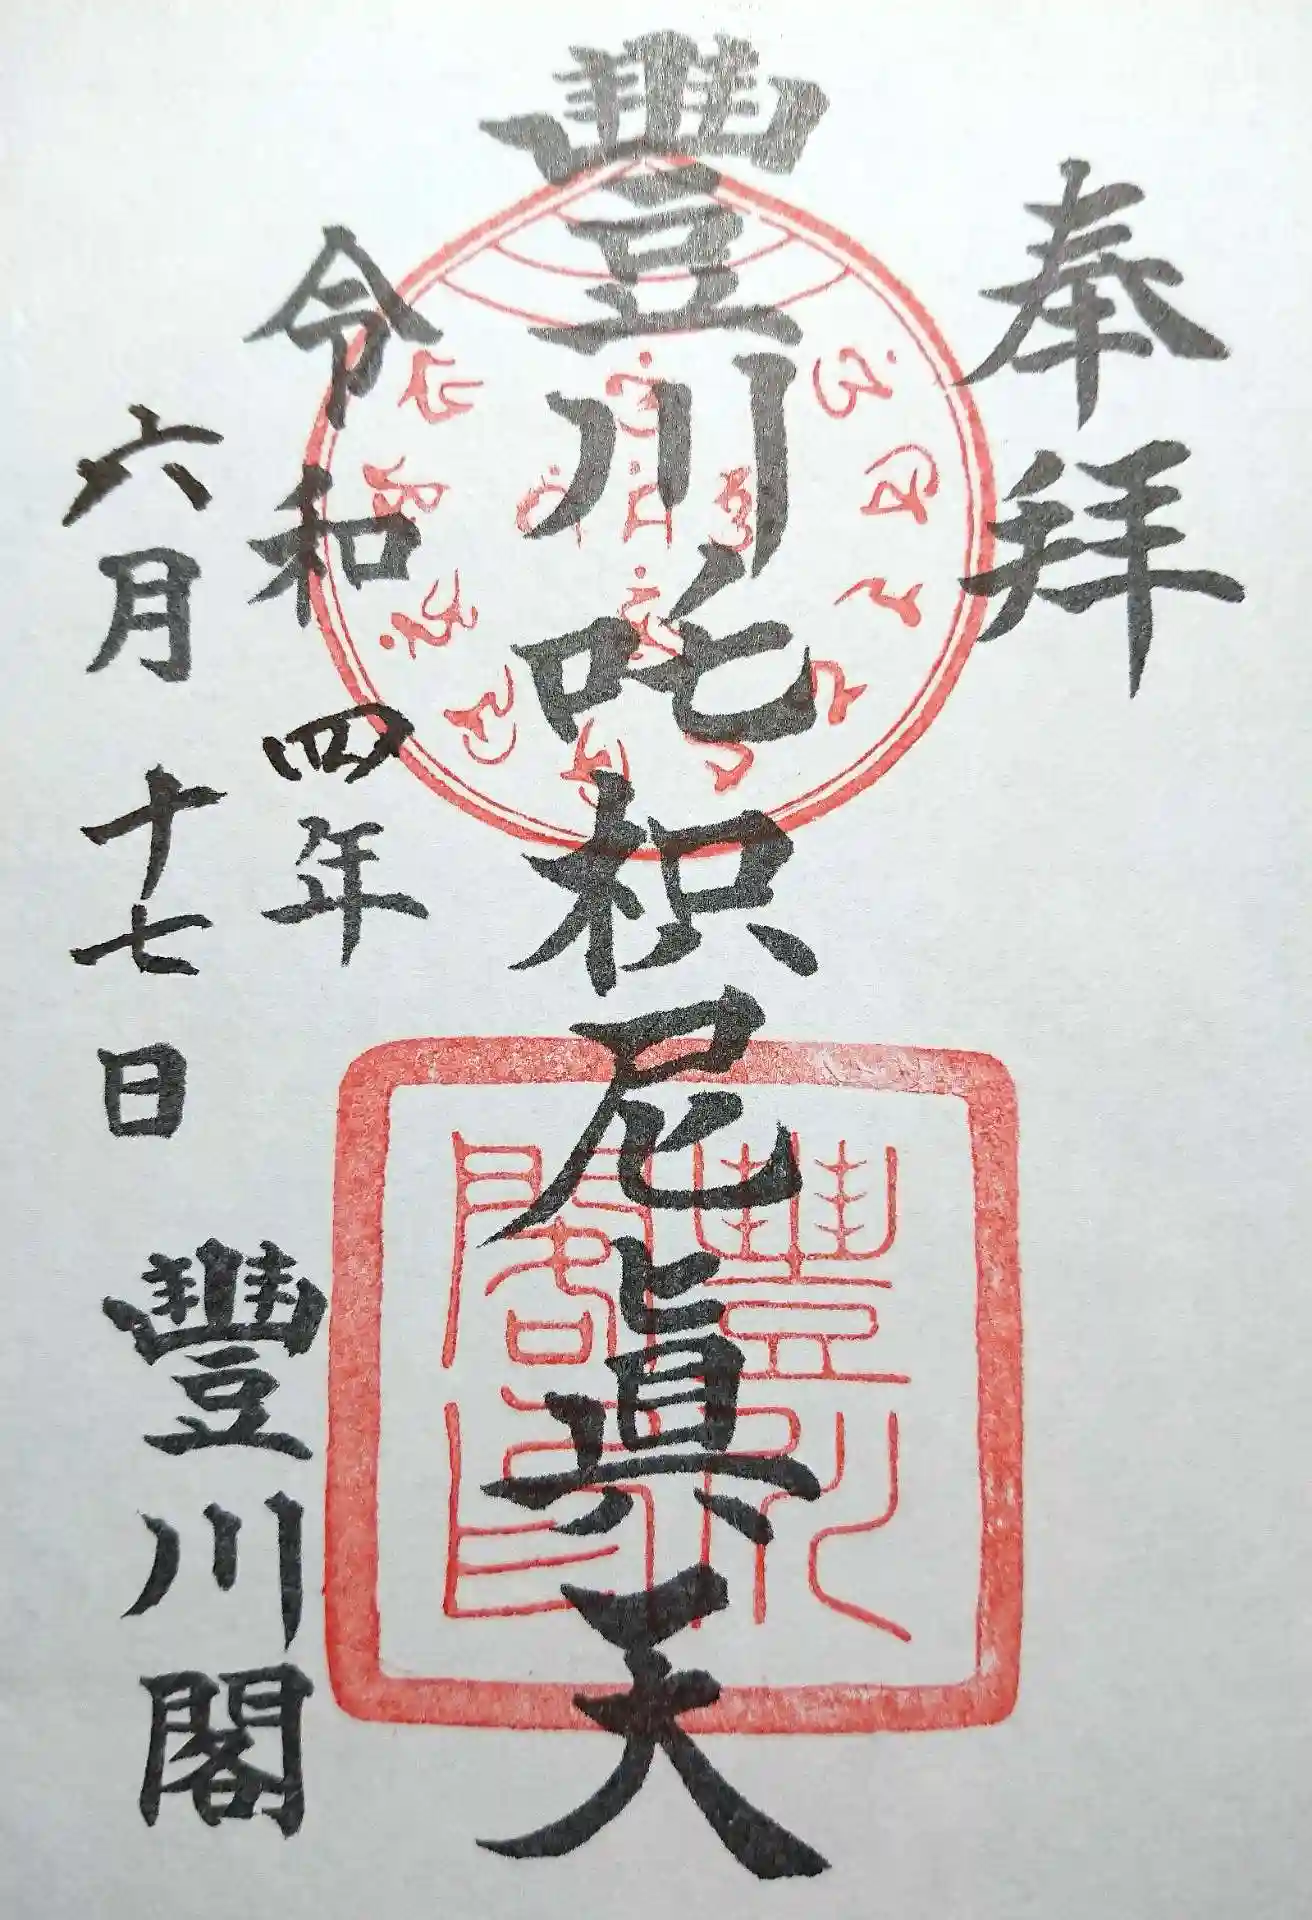 奉拝
豐川吒枳尼眞天
令和四年
六月十七日
豐川閣